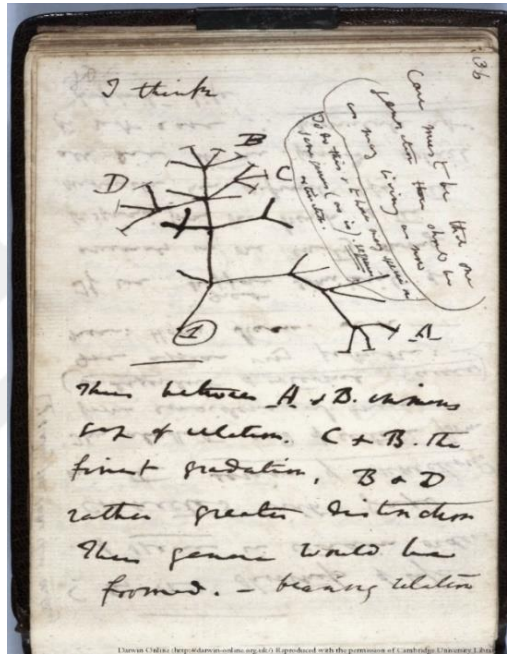 36
I think
Case must be that one
generation then should be
as many living as now
To do this & to have many species in
same genus (as is). requires
extinction.
B
C
D
A
1
Thus between A & B. immens
gap of relation. C & B. the
finest gradation, B & D
rather greater distinction
Thus genera would be
formed. — bearing relation
Darwin Online (http://darwin-online.org.uk/) Reproduced with the permission of Cambridge University Library